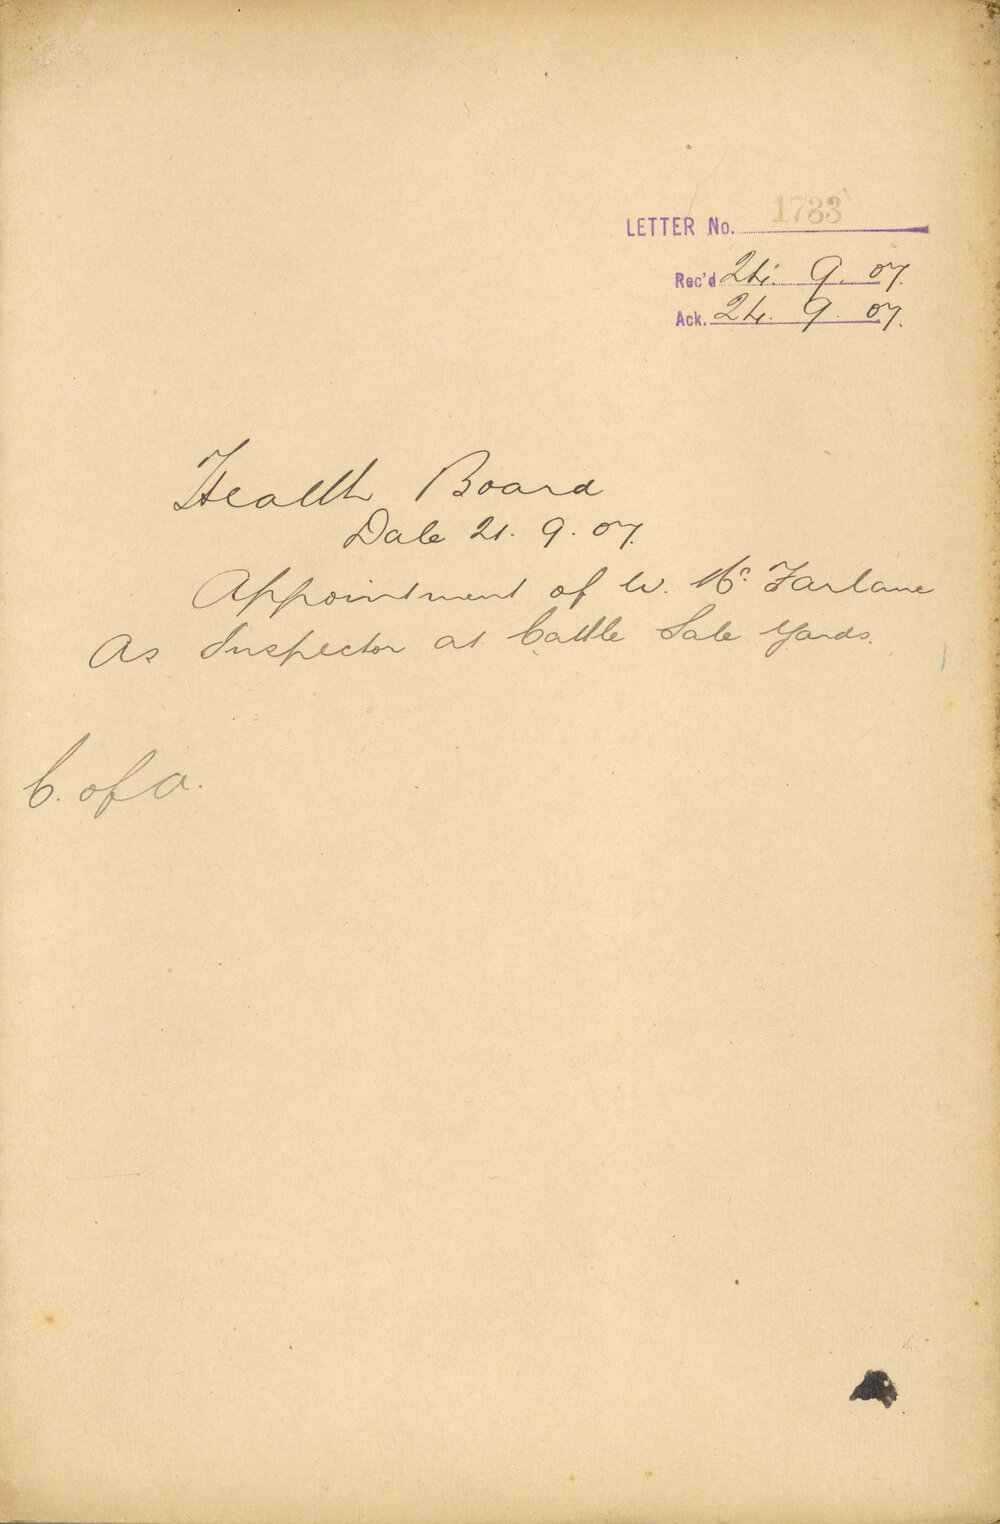 LETTER No. 1733
Rec'd 24. 9. 07.
Ack. 24. 9. 07.
Health Board
Date 21. 9. 07.
Appointment of W. Mc Farlane
As Inspector at Cattle Sale Yards.
C. of A.